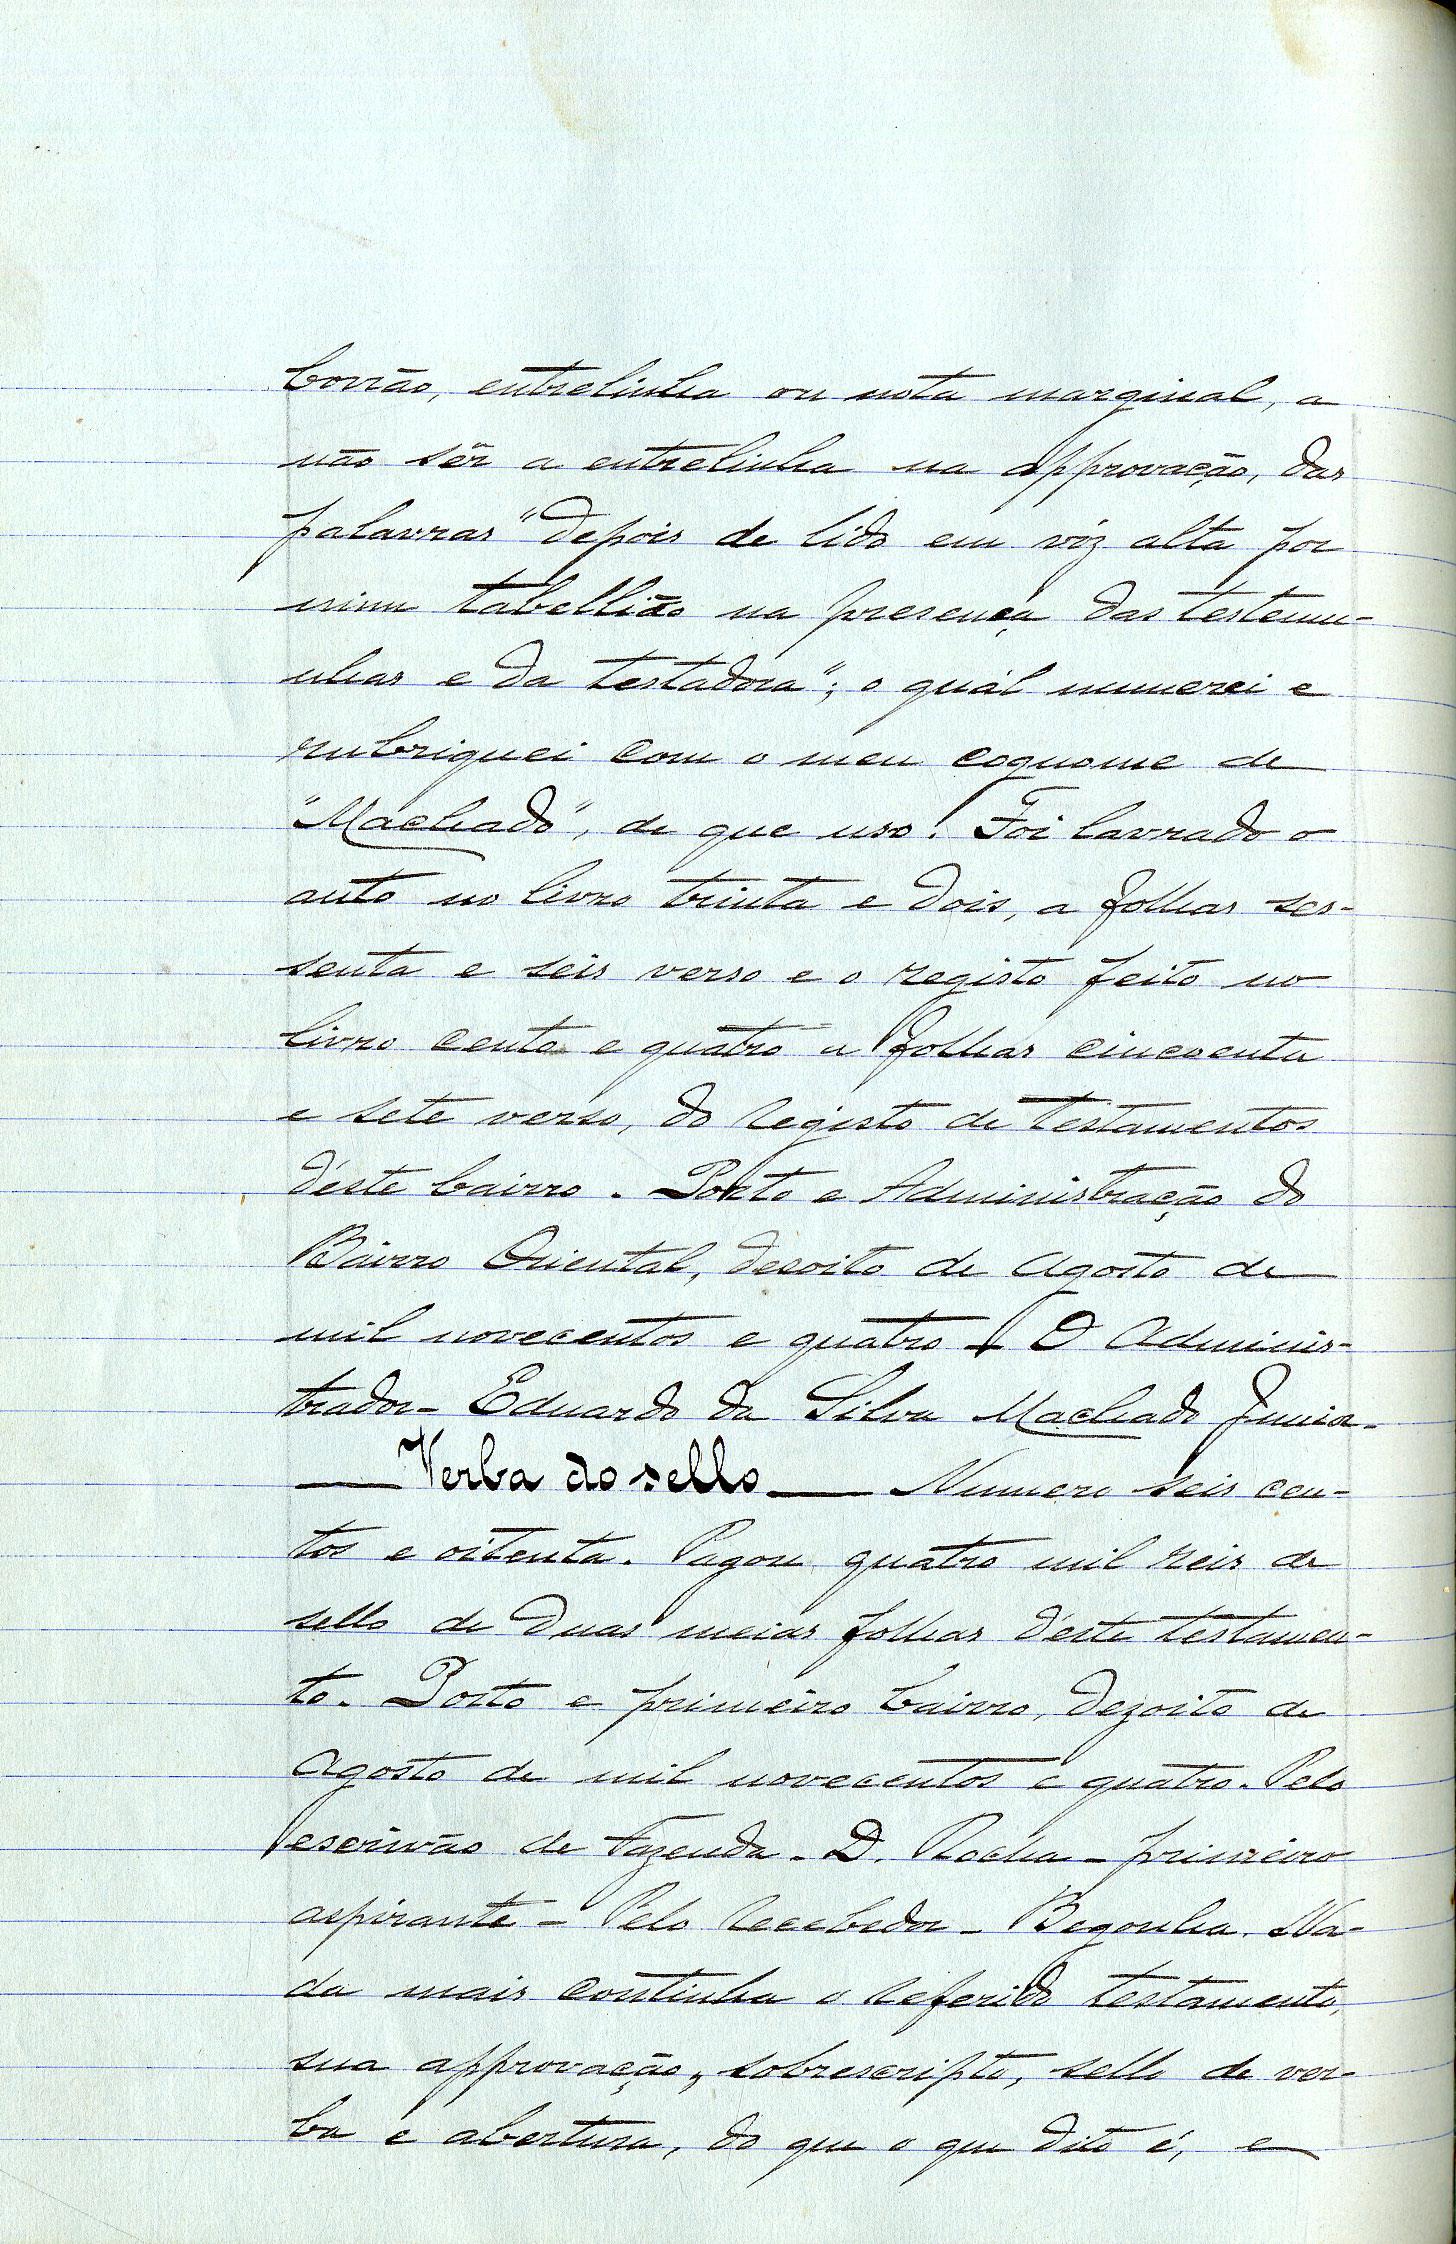 borrão, entrelinha ou nota marginal, a
não sêr a entrelinha na approvação, das
palavras "depois de lido em vóz alta por
mim tabellião na presença das testemu-
nhas e da testadora"; o quál numerei e
rubriquei com o meu cognome de
"Machado", de que uso. Foi lavrado o
auto no livro trinta e dois, a folhas ses-
senta e seis verso e o registo feito no
livro cento e quatro a folhas cincoenta
e sete verso, do registo de testamentos
d'éste bairro. Porto e Administração do
Bairro Oriental, desoito de Agosto de
mil novecentos e quatro - O Adminis-
trador - Eduardo da Silva Machado Junior -
— Verba do sello — Numero seis cen-
tos e oitenta. Pagou quatro mil reis de
sello de duas meias folhas d'éste testamen-
to. Porto e primeiro bairro, dezoito de
Agosto de mil novecentos e quatro. Pelo
escrivão de Fazenda - D. Rocha - primeiro
aspirante - Pelo recebedor - Begonha. Na-
da mais continha o referido testamento,
sua approvação, sobrescripto, sello de ver-
ba e abertura, do que o que dito é, e